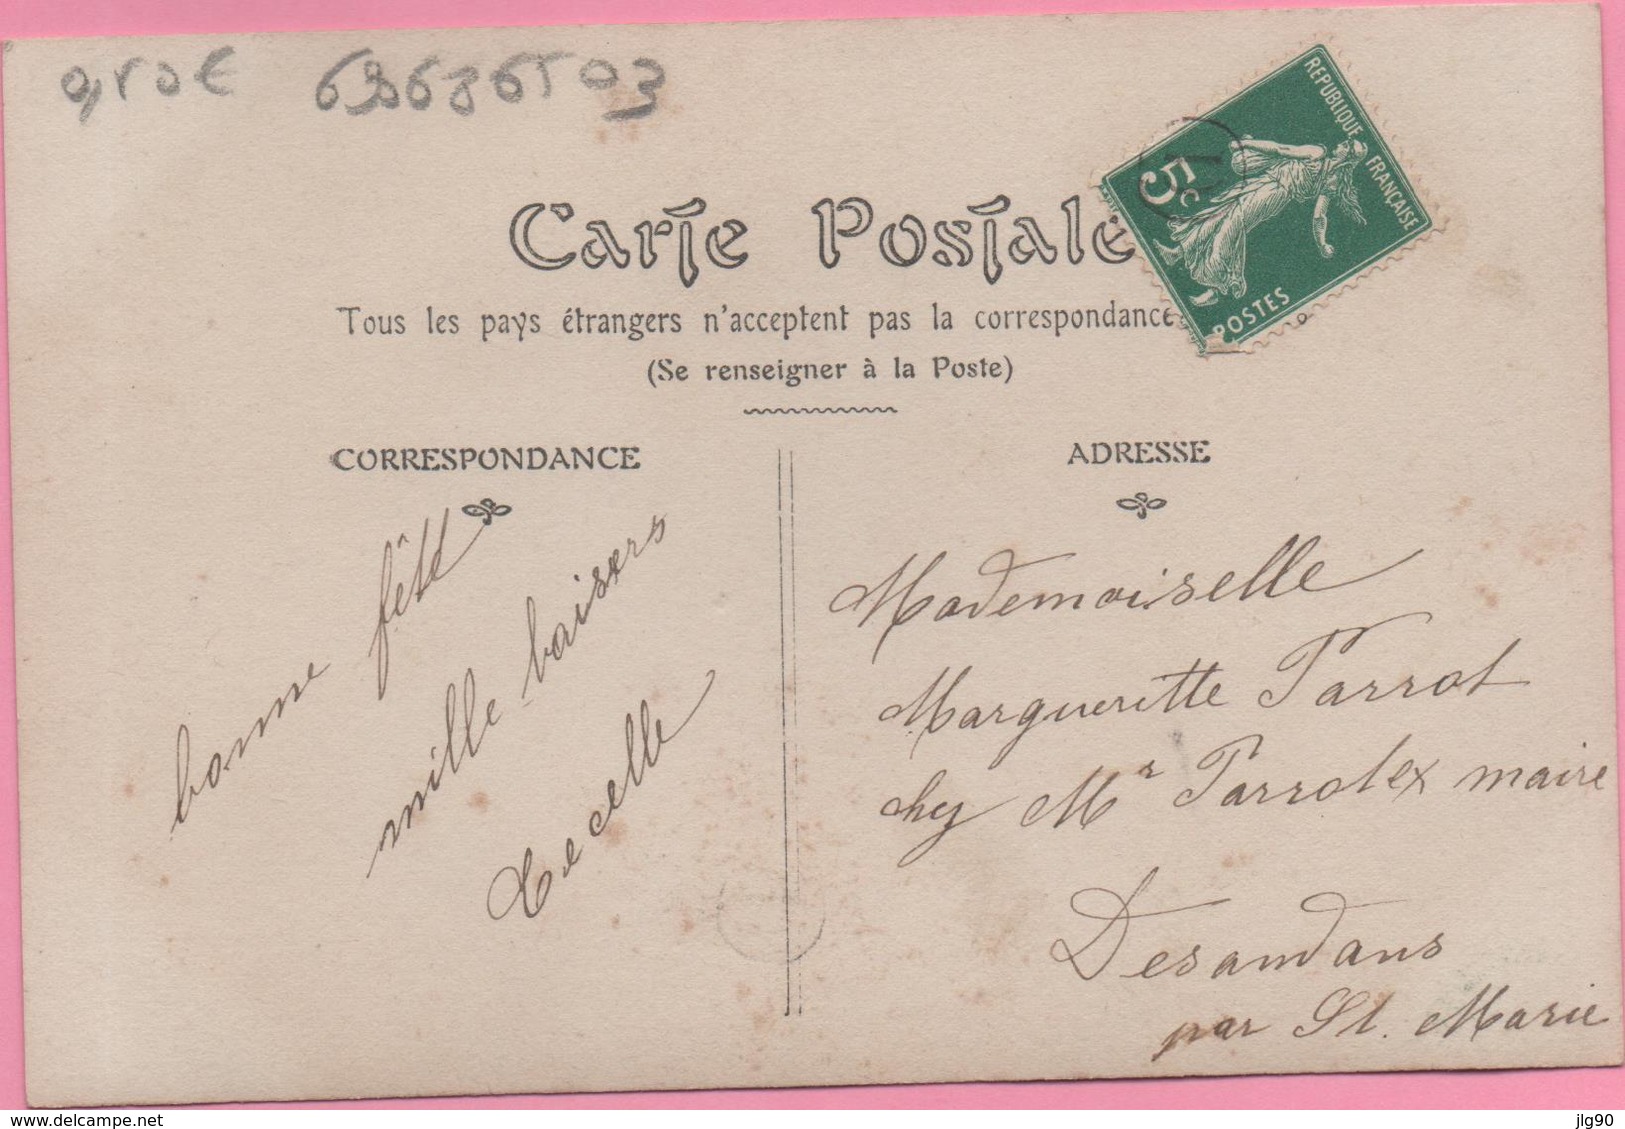 0,50€ 696865503
RÉPUBLIQUE FRANÇAISE
5c
POSTES
Carte Postale
Tous les pays étrangers n'acceptent pas la correspondance
(Se renseigner à la Poste)
CORRESPONDANCE
bonne fête
mille baisers
ADRESSE
Mademoiselle
Margueritte Parrot
chez Mr Parrot ex maire
Desandans
par St. Marie
delcampe.net
jlg90